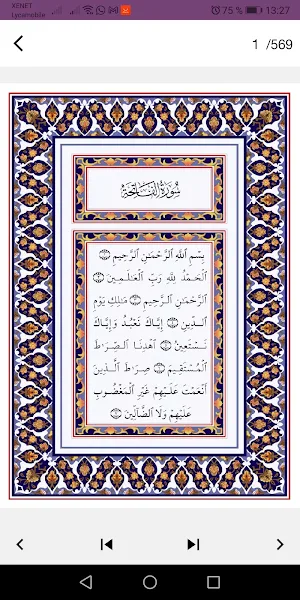 XENET
Lycamobile
75 % 13:27
1 /569
سُورَةُ الْفَاتِحَةِ
بِسْمِ ٱللَّهِ ٱلرَّحْمَٰنِ ٱلرَّحِيمِ ۝١
ٱلْحَمْدُ لِلَّهِ رَبِّ ٱلْعَٰلَمِينَ ۝٢
ٱلرَّحْمَٰنِ ٱلرَّحِيمِ ۝٣ مَٰلِكِ يَوْمِ
ٱلدِّينِ ۝٤ إِيَّاكَ نَعْبُدُ وَإِيَّاكَ
نَسْتَعِينُ ۝٥ ٱهْدِنَا ٱلصِّرَٰطَ
ٱلْمُسْتَقِيمَ ۝٦ صِرَٰطَ ٱلَّذِينَ
أَنْعَمْتَ عَلَيْهِمْ غَيْرِ ٱلْمَغْضُوبِ
عَلَيْهِمْ وَلَا ٱلضَّآلِّينَ ۝٧